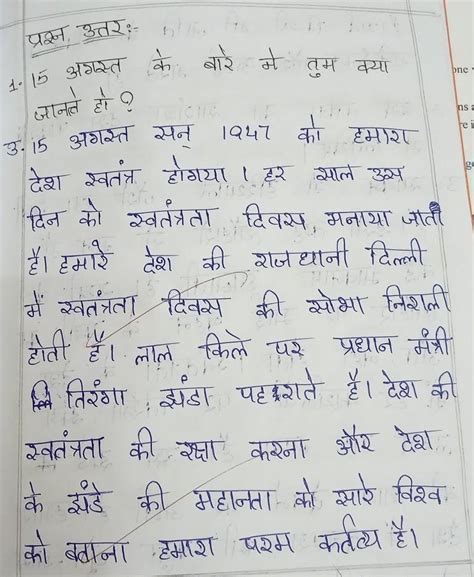 प्रश्न उत्तर:-
1. 15 अगस्त के बारे मे तुम क्या
जानते हो ?
उ. 15 अगस्त सन् 1947 को हमारा
देश स्वतंत्र होगया । हर साल उस
दिन को स्वतंत्रता दिवस मनाया जाती
है। हमारे देश की राजधानी दिल्ली
में स्वतंत्रता दिवस की सोभा निराली
होती है। लाल किले पर प्रधान मंत्री
तिरंगा झंडा पहराते है। देश की
स्वतंत्रता की रक्षा करना और देश
के झंडे की महानता को सारे विश्व
को बताना हमारा परम कर्तव्य है।